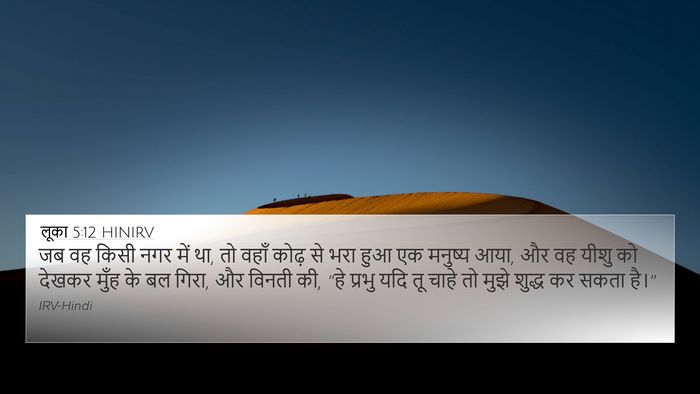 लूका 5:12 HINIRV
जब वह किसी नगर में था, तो वहाँ कोढ़ से भरा हुआ एक मनुष्य आया, और वह यीशु को
देखकर मुँह के बल गिरा, और विनती की, “हे प्रभु यदि तू चाहे तो मुझे शुद्ध कर सकता है।”
IRV-Hindi